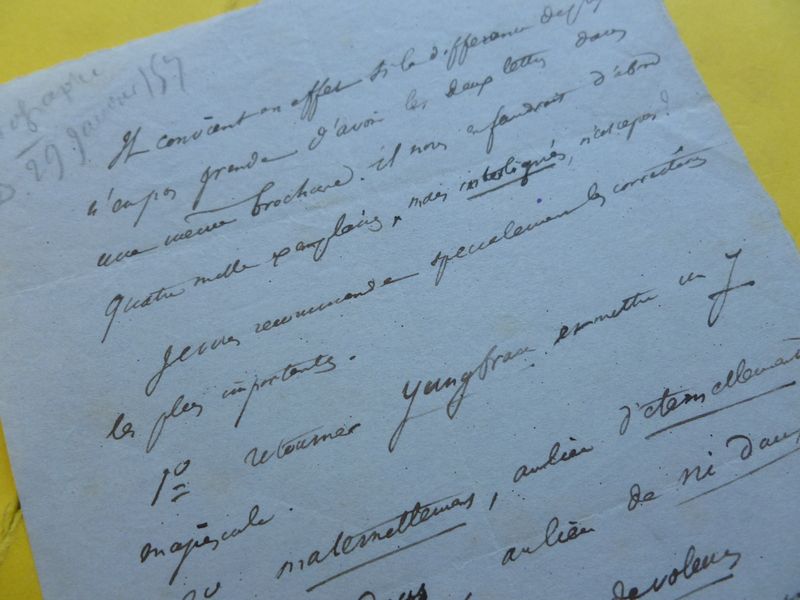 29 Janvier 57
Il convient en effet si la différence de prix
n'est pas grande d'avoir les deux lettres dans
une même brochure. il nous en faudroit d'abord
quatre mille exemplaires, mais interlignés, n'est ce pas?
Je vous recommande spécialement les corrections
les plus importantes.
1o retourner Jungfrau en mettre un J
majuscule.
2o maternellement, au lieu d'éternellement
au lieu de ni dans